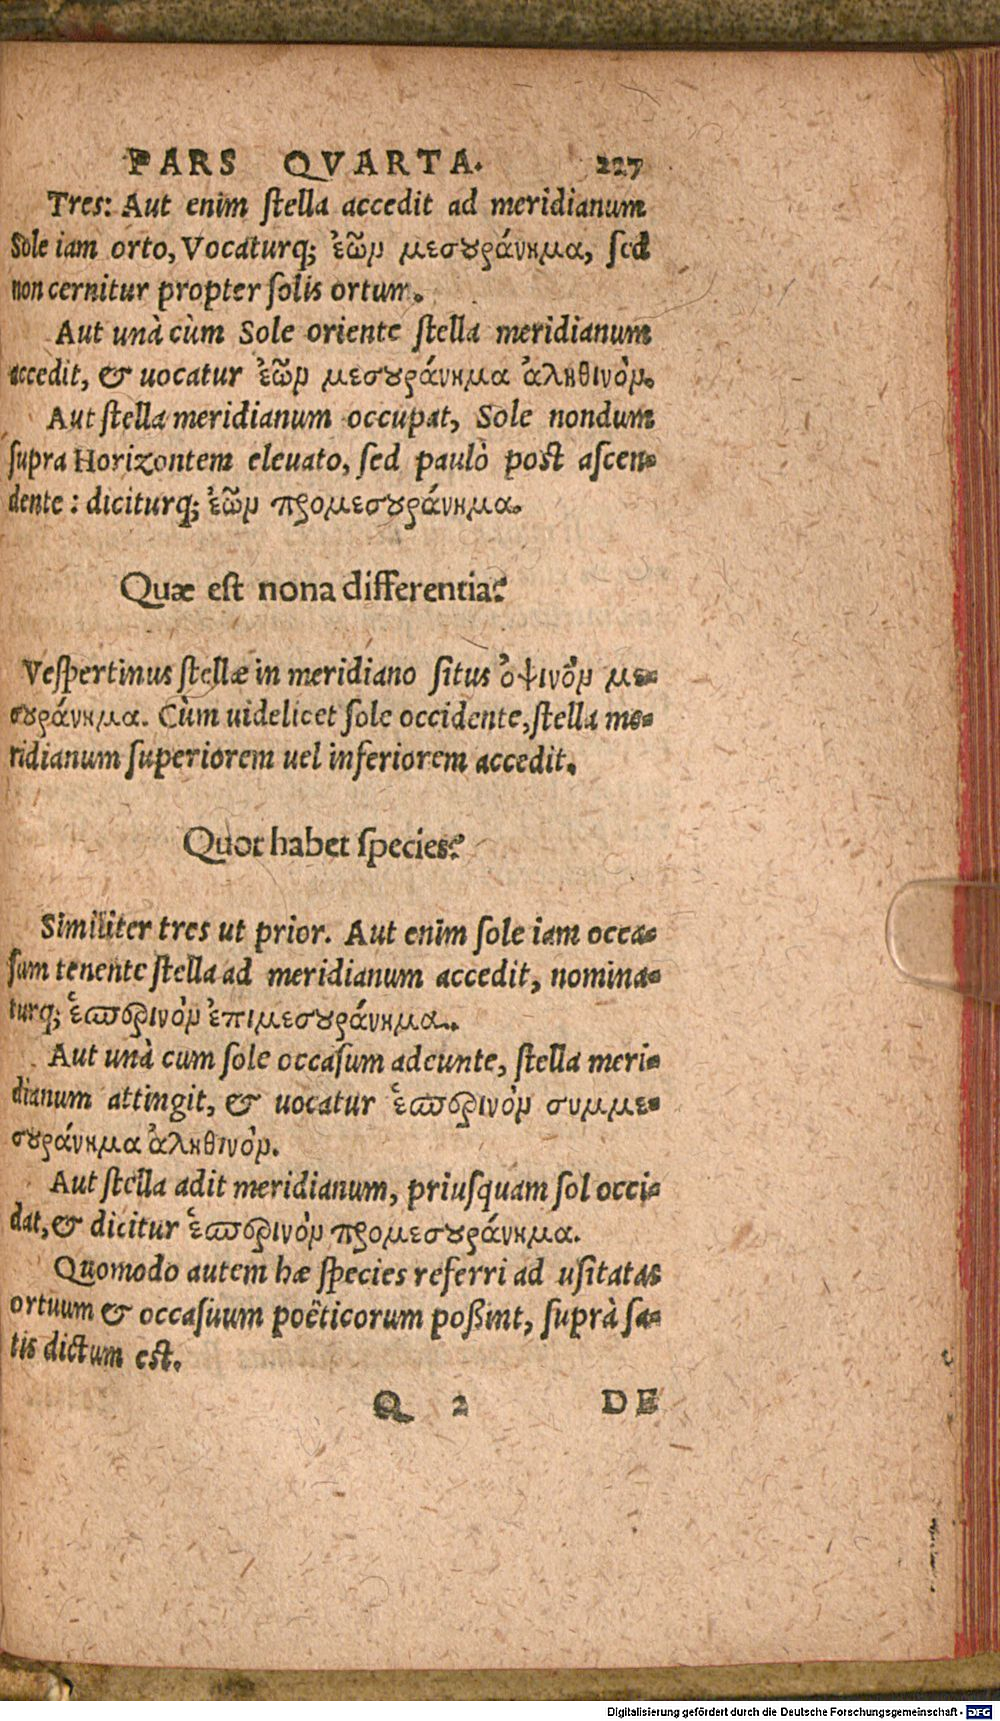 PARS QVARTA. 227
Tres: Aut enim ſtella accedit ad meridianum
Sole iam orto, Vocaturq; ἑῶν μεσουράνημα, ſed
non cernitur propter ſolis ortum.
Aut unà cùm Sole oriente ſtella meridianum
accedit, & uocatur ἑῶν μεσουράνημα ἀληθινόν.
Aut ſtella meridianum occupat, Sole nondum
ſupra Horizontem eleuato, ſed paulò poſt aſcen-
dente: diciturq; ἑῶν προμεσουράνημα.
Quæ est nona differentia?
Veſpertinus ſtellæ in meridiano ſitus ὀψινὸν με-
σουράνημα. Cùm uidelicet ſole occidente, ſtella me-
ridianum ſuperiorem uel inferiorem accedit.
Quot habet ſpecies?
Similiter tres ut prior. Aut enim ſole iam occa-
ſum tenente ſtella ad meridianum accedit, nomina-
turq; ἑσπερινὸν ἐπιμεσουράνημα.
Aut unà cum ſole occaſum adeunte, ſtella meri-
dianum attingit, & uocatur ἑσπερινὸν συμμε-
σουράνημα ἀληθινόν.
Aut ſtella adit meridianum, priuſquam ſol occi-
dat, & dicitur ἑσπερινὸν προμεσουράνημα.
Quomodo autem hæ ſpecies referri ad uſitatas
ortuum & occaſuum poëticorum poßint, ſuprà ſa-
tis dictum eſt.
Q 2 DE
Digitalisierung gefördert durch die Deutsche Forschungsgemeinschaft - DFG